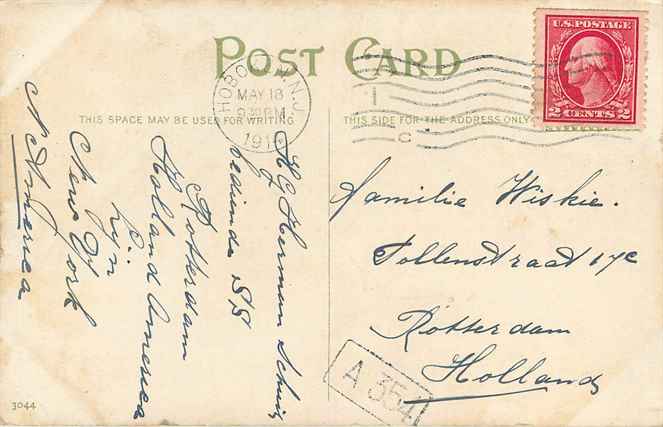 POST CARD
THIS SPACE MAY BE USED FOR WRITING
THIS SIDE FOR THE ADDRESS ONLY
U.S. POSTAGE
2 CENTS 2
HOBOKEN, N.J.
MAY 18
9 30 PM
191
C
Herman
SS
Rotterdam
Holland America
Lijn
New York
N America
Familie Wiskie.
Tollenstraat 17c
Rotterdam
Holland
A 354
3044